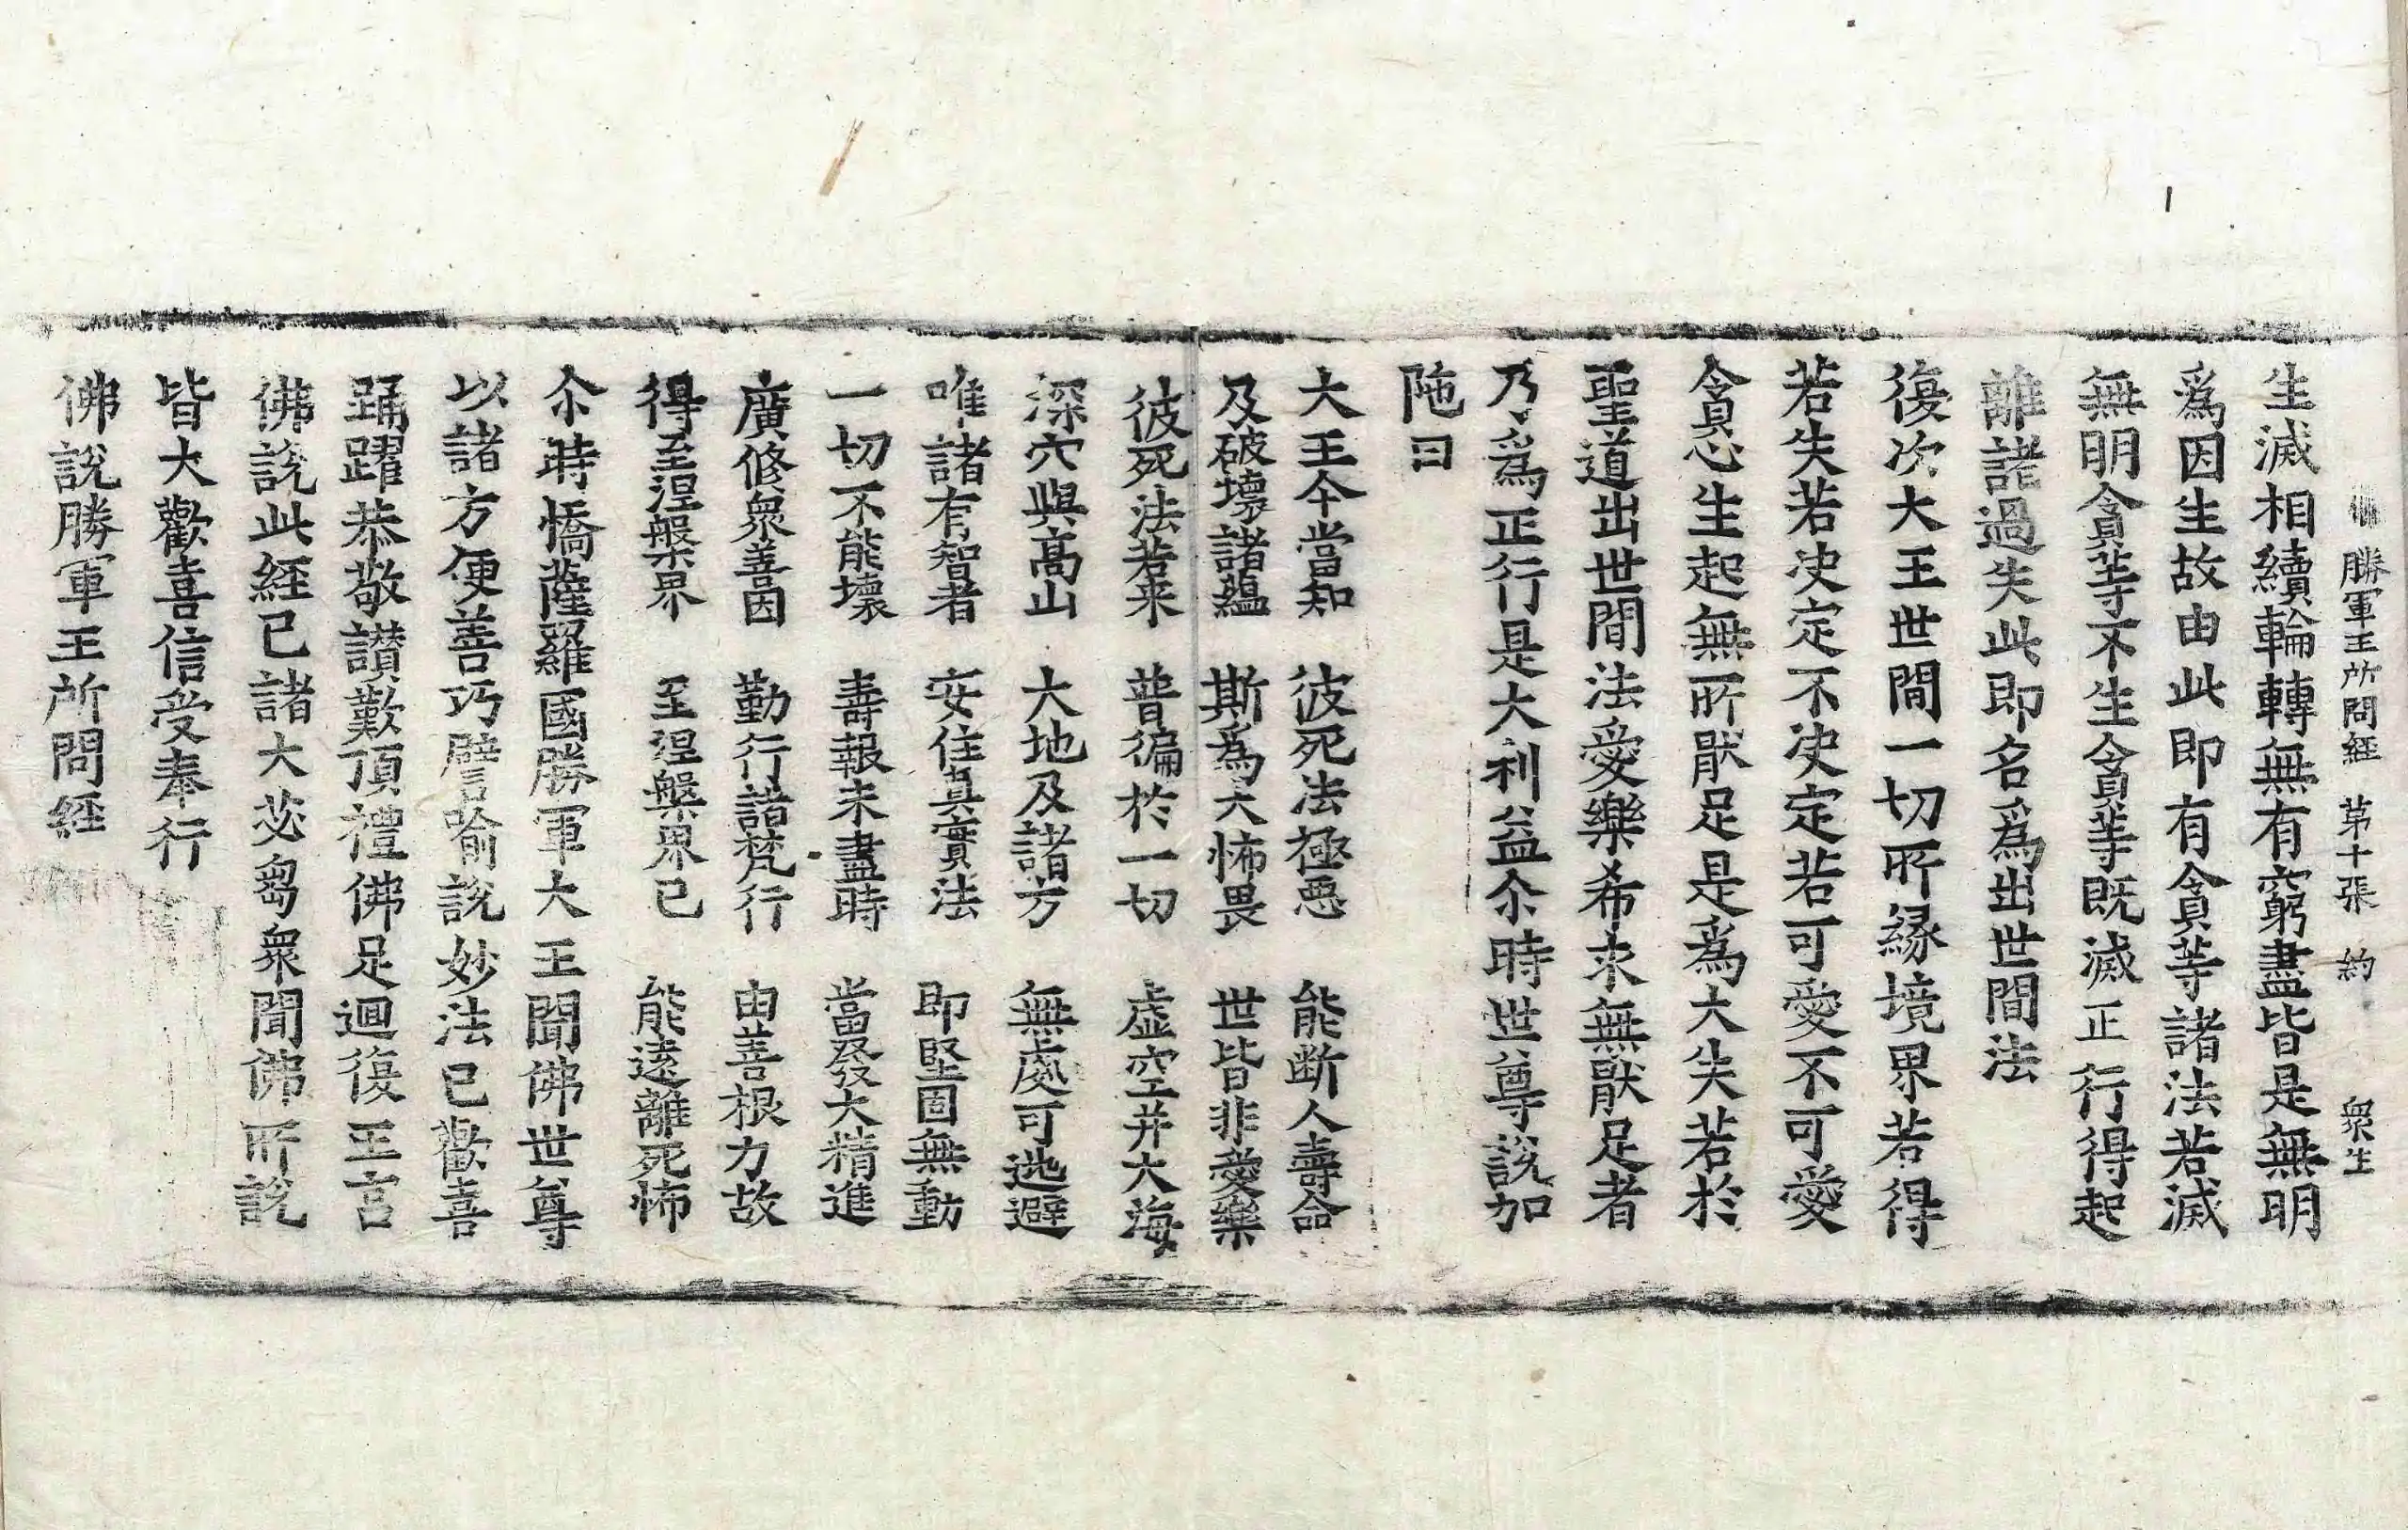 佛 勝軍王所問經 第十張 約 衆生
生滅相續輪轉無有窮盡皆是無明
爲因生故由此即有貪等諸法若滅
無明貪等不生貪等既滅正行得起
離諸過失此即名爲出世間法
復次大王世間一切所緣境界若得
若失若决定不决定若可愛不可愛
貪心生起無所猒足是爲大失若於
聖道出世間法愛樂希求無猒足者
乃爲正行是大利益尒時世尊說加
陁曰
大王今當知 彼死法極惡 能断人壽命
及破壞諸蘊 斯爲大怖畏 世皆非愛樂
彼死法若来 普徧於一切 虛空并大海
深穴與高山 大地及諸方 無處可逃避
唯諸有智者 安住真實法 即堅固無動
一切不能壞 壽報未盡時 當發大精進
廣修衆善因 勤行諸梵行 由善根力故
得至涅槃界 至涅槃界已 能遠離死怖
尒時憍薩羅國勝軍大王聞佛世尊
以諸方便善巧譬喻說妙法已歡喜
踊躍恭敬讃歎頂禮佛足迴復王宫
佛說此經已諸大苾芻衆聞佛所說
皆大歡喜信受奉行
佛說勝軍王所問經